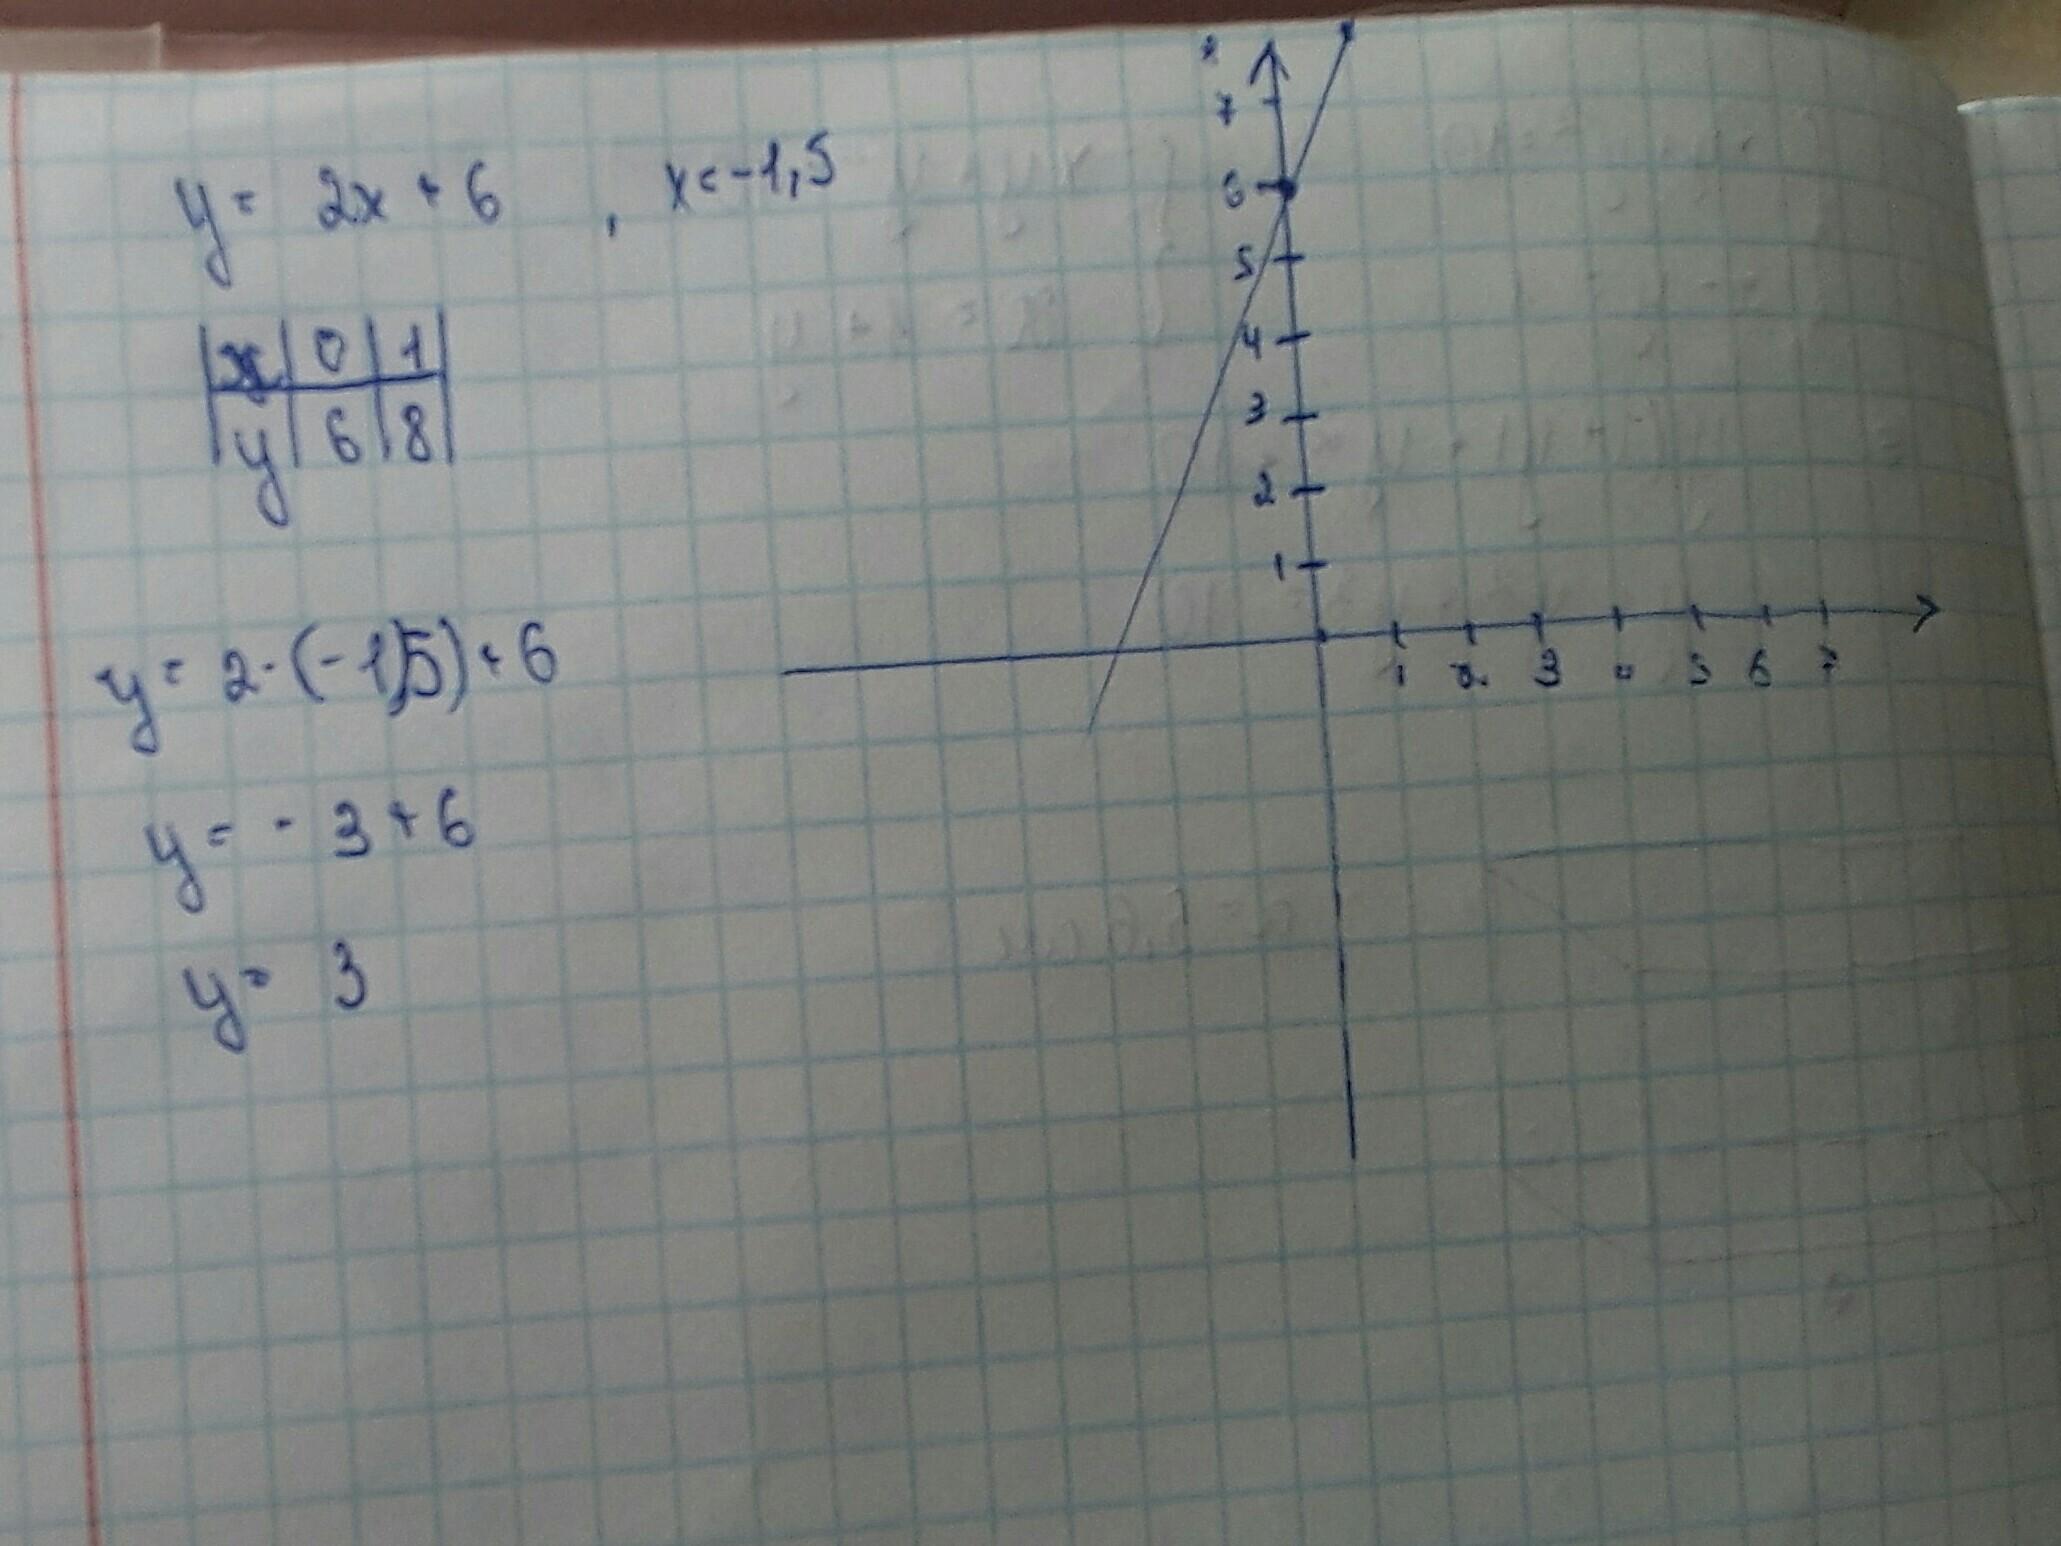 y = 2x + 6 , x = -1,5
x 0 1
y 6 8
y = 2·(-1,5) + 6
y = - 3 + 6
y = 3
7
6
5
4
3
2
1
1 2 3 4 5 6 7